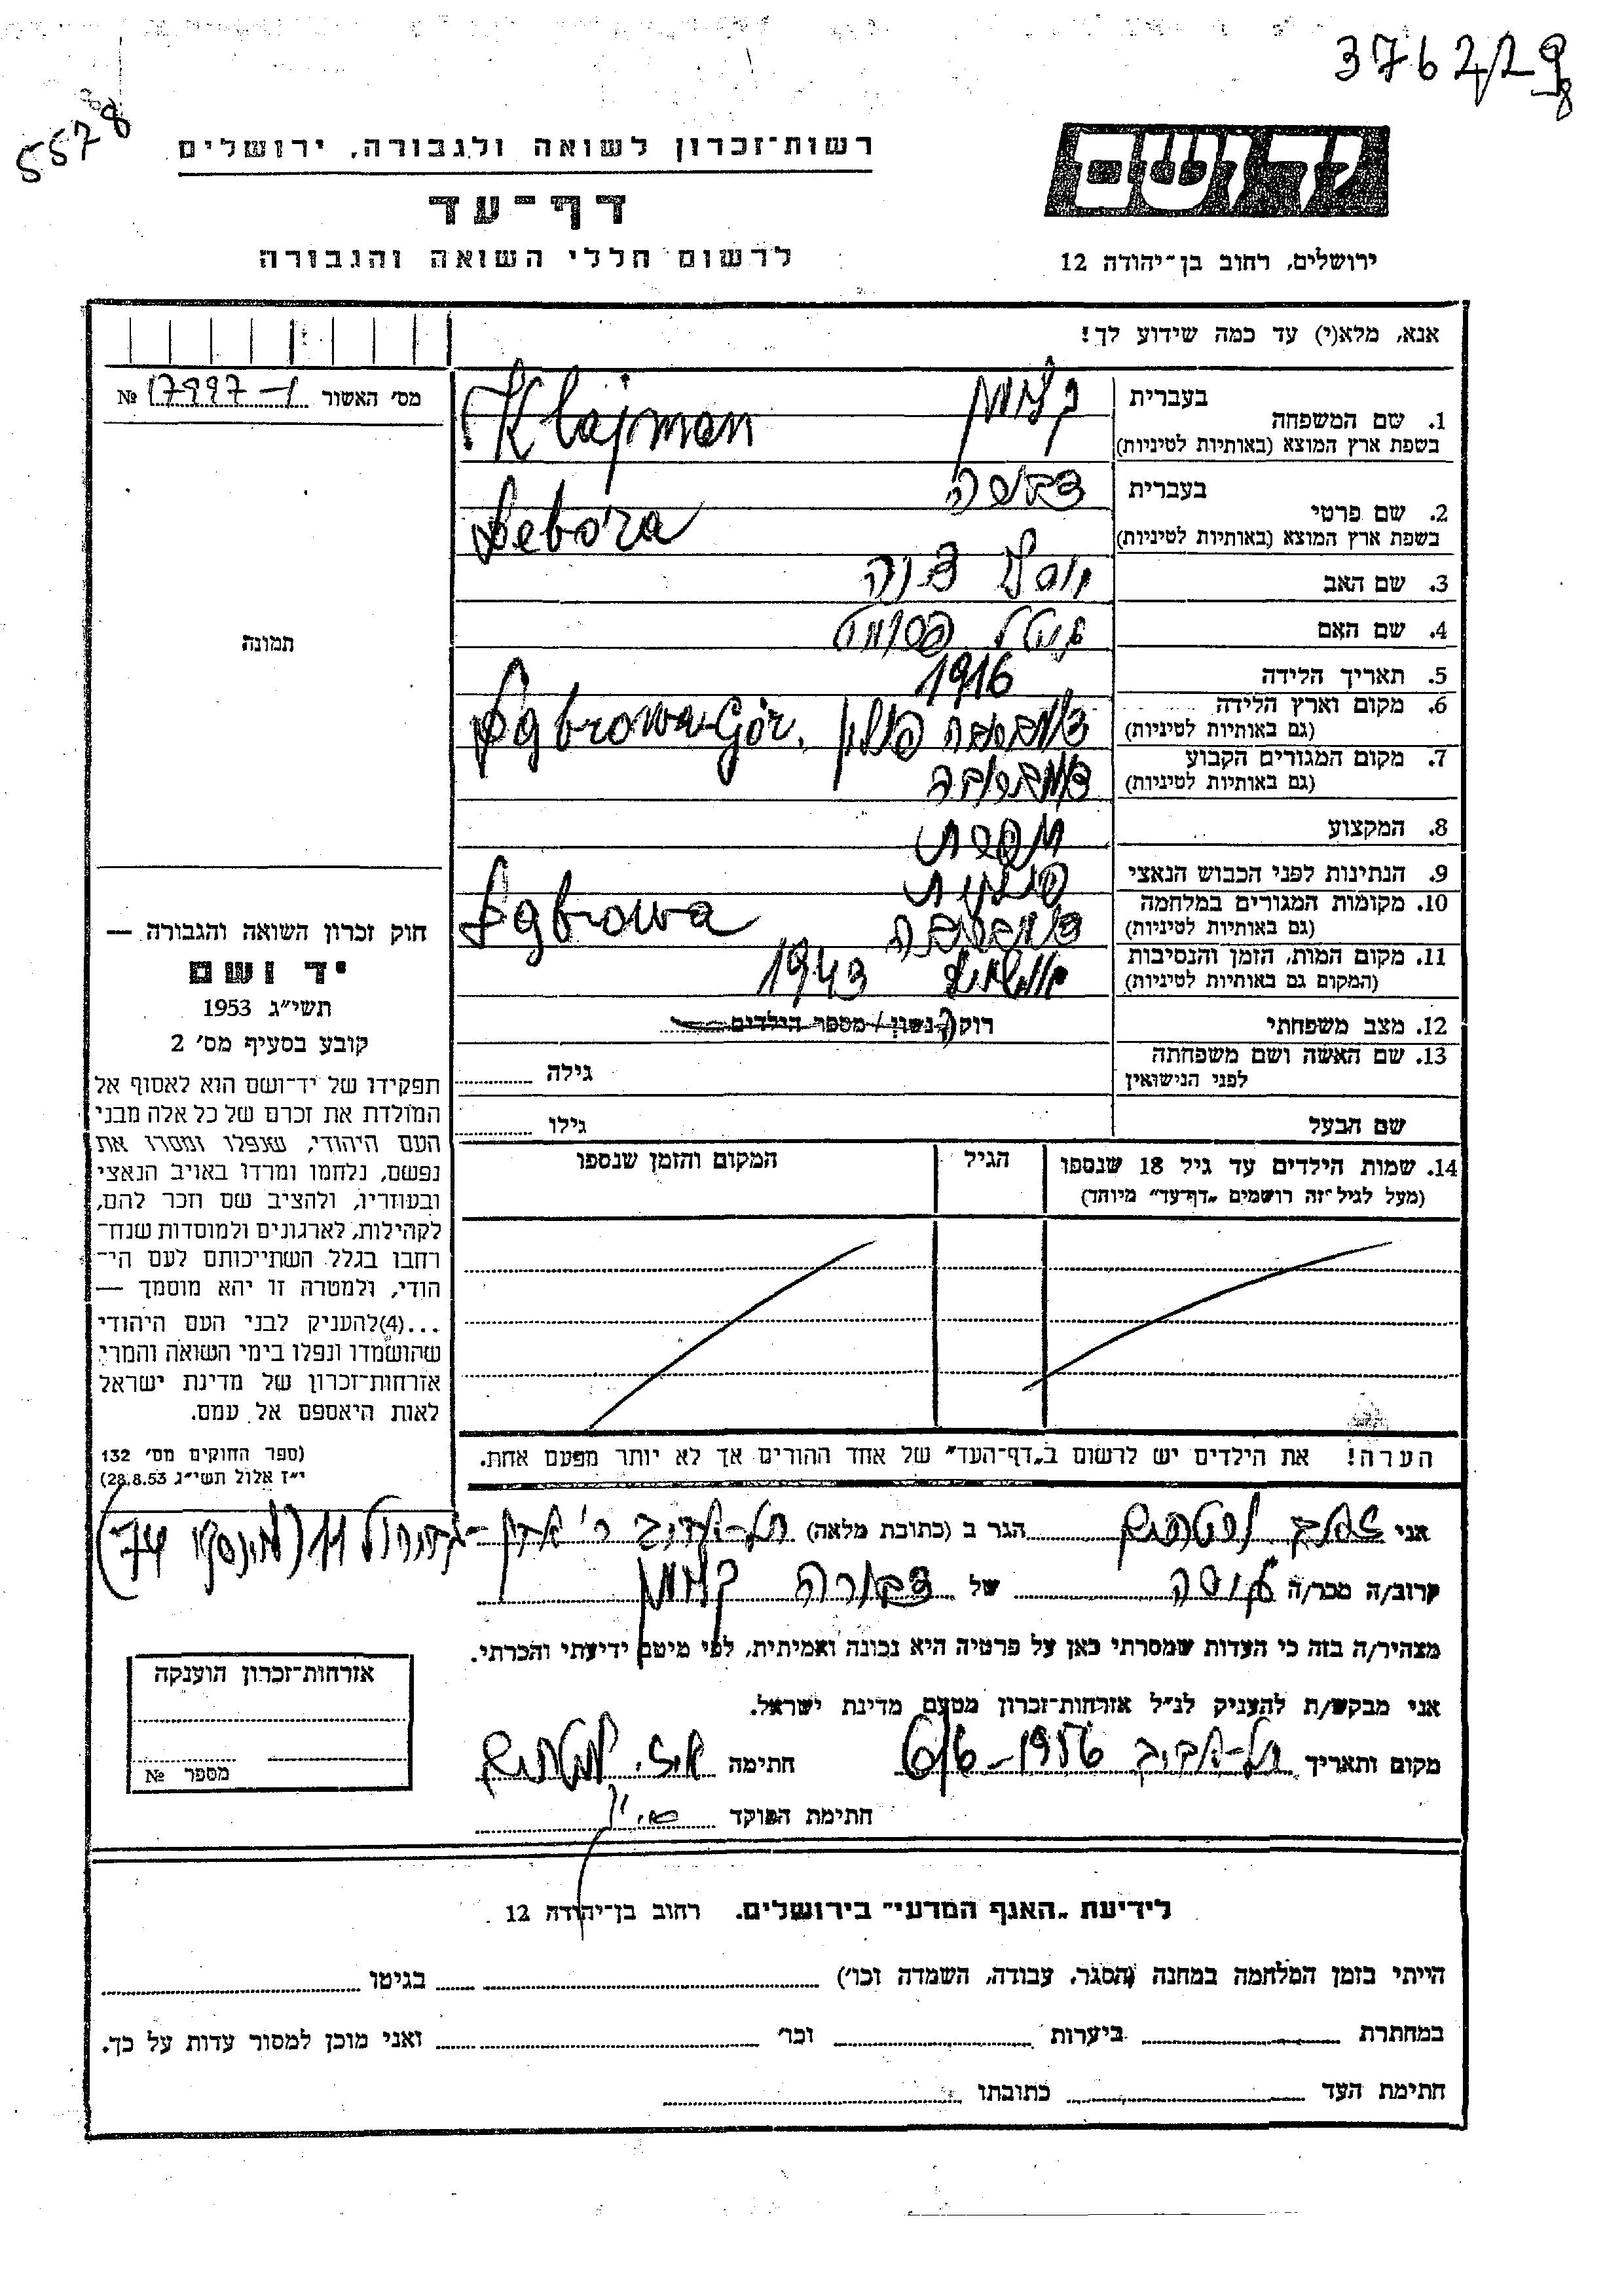 3762/298
5578
רשות־זכרון לשואה ולגבורה, ירושלים
יד ושם
דף־עד
לרשום חללי השואה והגבורה
ירושלים, רחוב בן־יהודה 12
אנא, מלא(י) עד כמה שידוע לך!
מס׳ האשור 17997-1 №
1. שם המשפחה
בעברית
בשפת ארץ המוצא (באותיות לטיניות) Klajman
2. שם פרטי
בעברית דבורה
בשפת ארץ המוצא (באותיות לטיניות) Debora
3. שם האב
4. שם האם
5. תאריך הלידה 1916
6. מקום וארץ הלידה
(גם באותיות לטיניות) פולין Dąbrowa-Gór.
7. מקום המגורים הקבוע
(גם באותיות לטיניות) דומברובה
8. המקצוע תופרת
9. הנתינות לפני הכבוש הנאצי פולנית
10. מקומות המגורים במלחמה
(גם באותיות לטיניות) דומברובה Dąbrowa
11. מקום המות, הזמן והנסיבות
(המקום גם באותיות לטיניות) אושויץ 1943
12. מצב משפחתי רוק/ה נשוי/ מספר הילדים
13. שם האשה ושם משפחתה
לפני הנישואין
גילה
שם הבעל גילו
14. שמות הילדים עד גיל 18 שנספו
(מעל לגיל זה רושמים „דף־עד״ מיוחד)
הגיל
המקום והזמן שנספו
הערה! את הילדים יש לרשום ב„דף־העד״ של אחד ההורים אך לא יותר מפעם אחת.
תמונה
חוק זכרון השואה והגבורה —
יד ושם
תשי״ג 1953
קובע בסעיף מס׳ 2
תפקידו של יד־ושם הוא לאסוף אל
המולדת את זכרם של כל אלה מבני
העם היהודי, שנפלו ומסרו את
נפשם, נלחמו ומרדו באויב הנאצי
ובעוזריו, ולהציב שם וזכר להם,
לקהילות, לארגונים ולמוסדות שנח־
רבו בגלל השתייכותם לעם הי־
הודי, ולמטרה זו יהא מוסמך —
...(4)להעניק לבני העם היהודי
שהושמדו ונפלו בימי השואה והמרי
אזרחות־זכרון של מדינת ישראל
לאות היאספם אל עמם.
(ספר החוקים מס׳ 132
י״ז אלול תשי״ג 28.8.53)
אני הגר ב (כתובת מלאה) תל-אביב 11 74
קרוב/ה מכר/ה של דבורה קלימן
מצהיר/ה בזה כי העדות שמסרתי כאן על פרטיה היא נכונה ואמיתית, לפי מיטב ידיעתי והכרתי.
אני מבקש/ת להעניק לנ״ל אזרחות־זכרון מטעם מדינת ישראל.
מקום ותאריך תל-אביב 6/6-1956 חתימה
חתימת הפוקד
אזרחות־זכרון הוענקה
מספר №
לידיעת „האגף המדעי״ בירושלים. רחוב בן־יהודה 12
הייתי בזמן המלחמה במחנה (הסגר, עבודה, השמדה וכו׳) בגיטו
במחתרת ביערות וכו׳ ואני מוכן למסור עדות על כך.
חתימת העד כתובתו